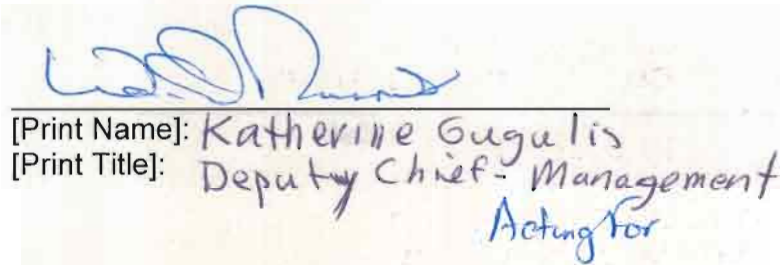 [Print Name]: Katherine Gugulis
[Print Title]: Deputy Chief- Management
Acting For